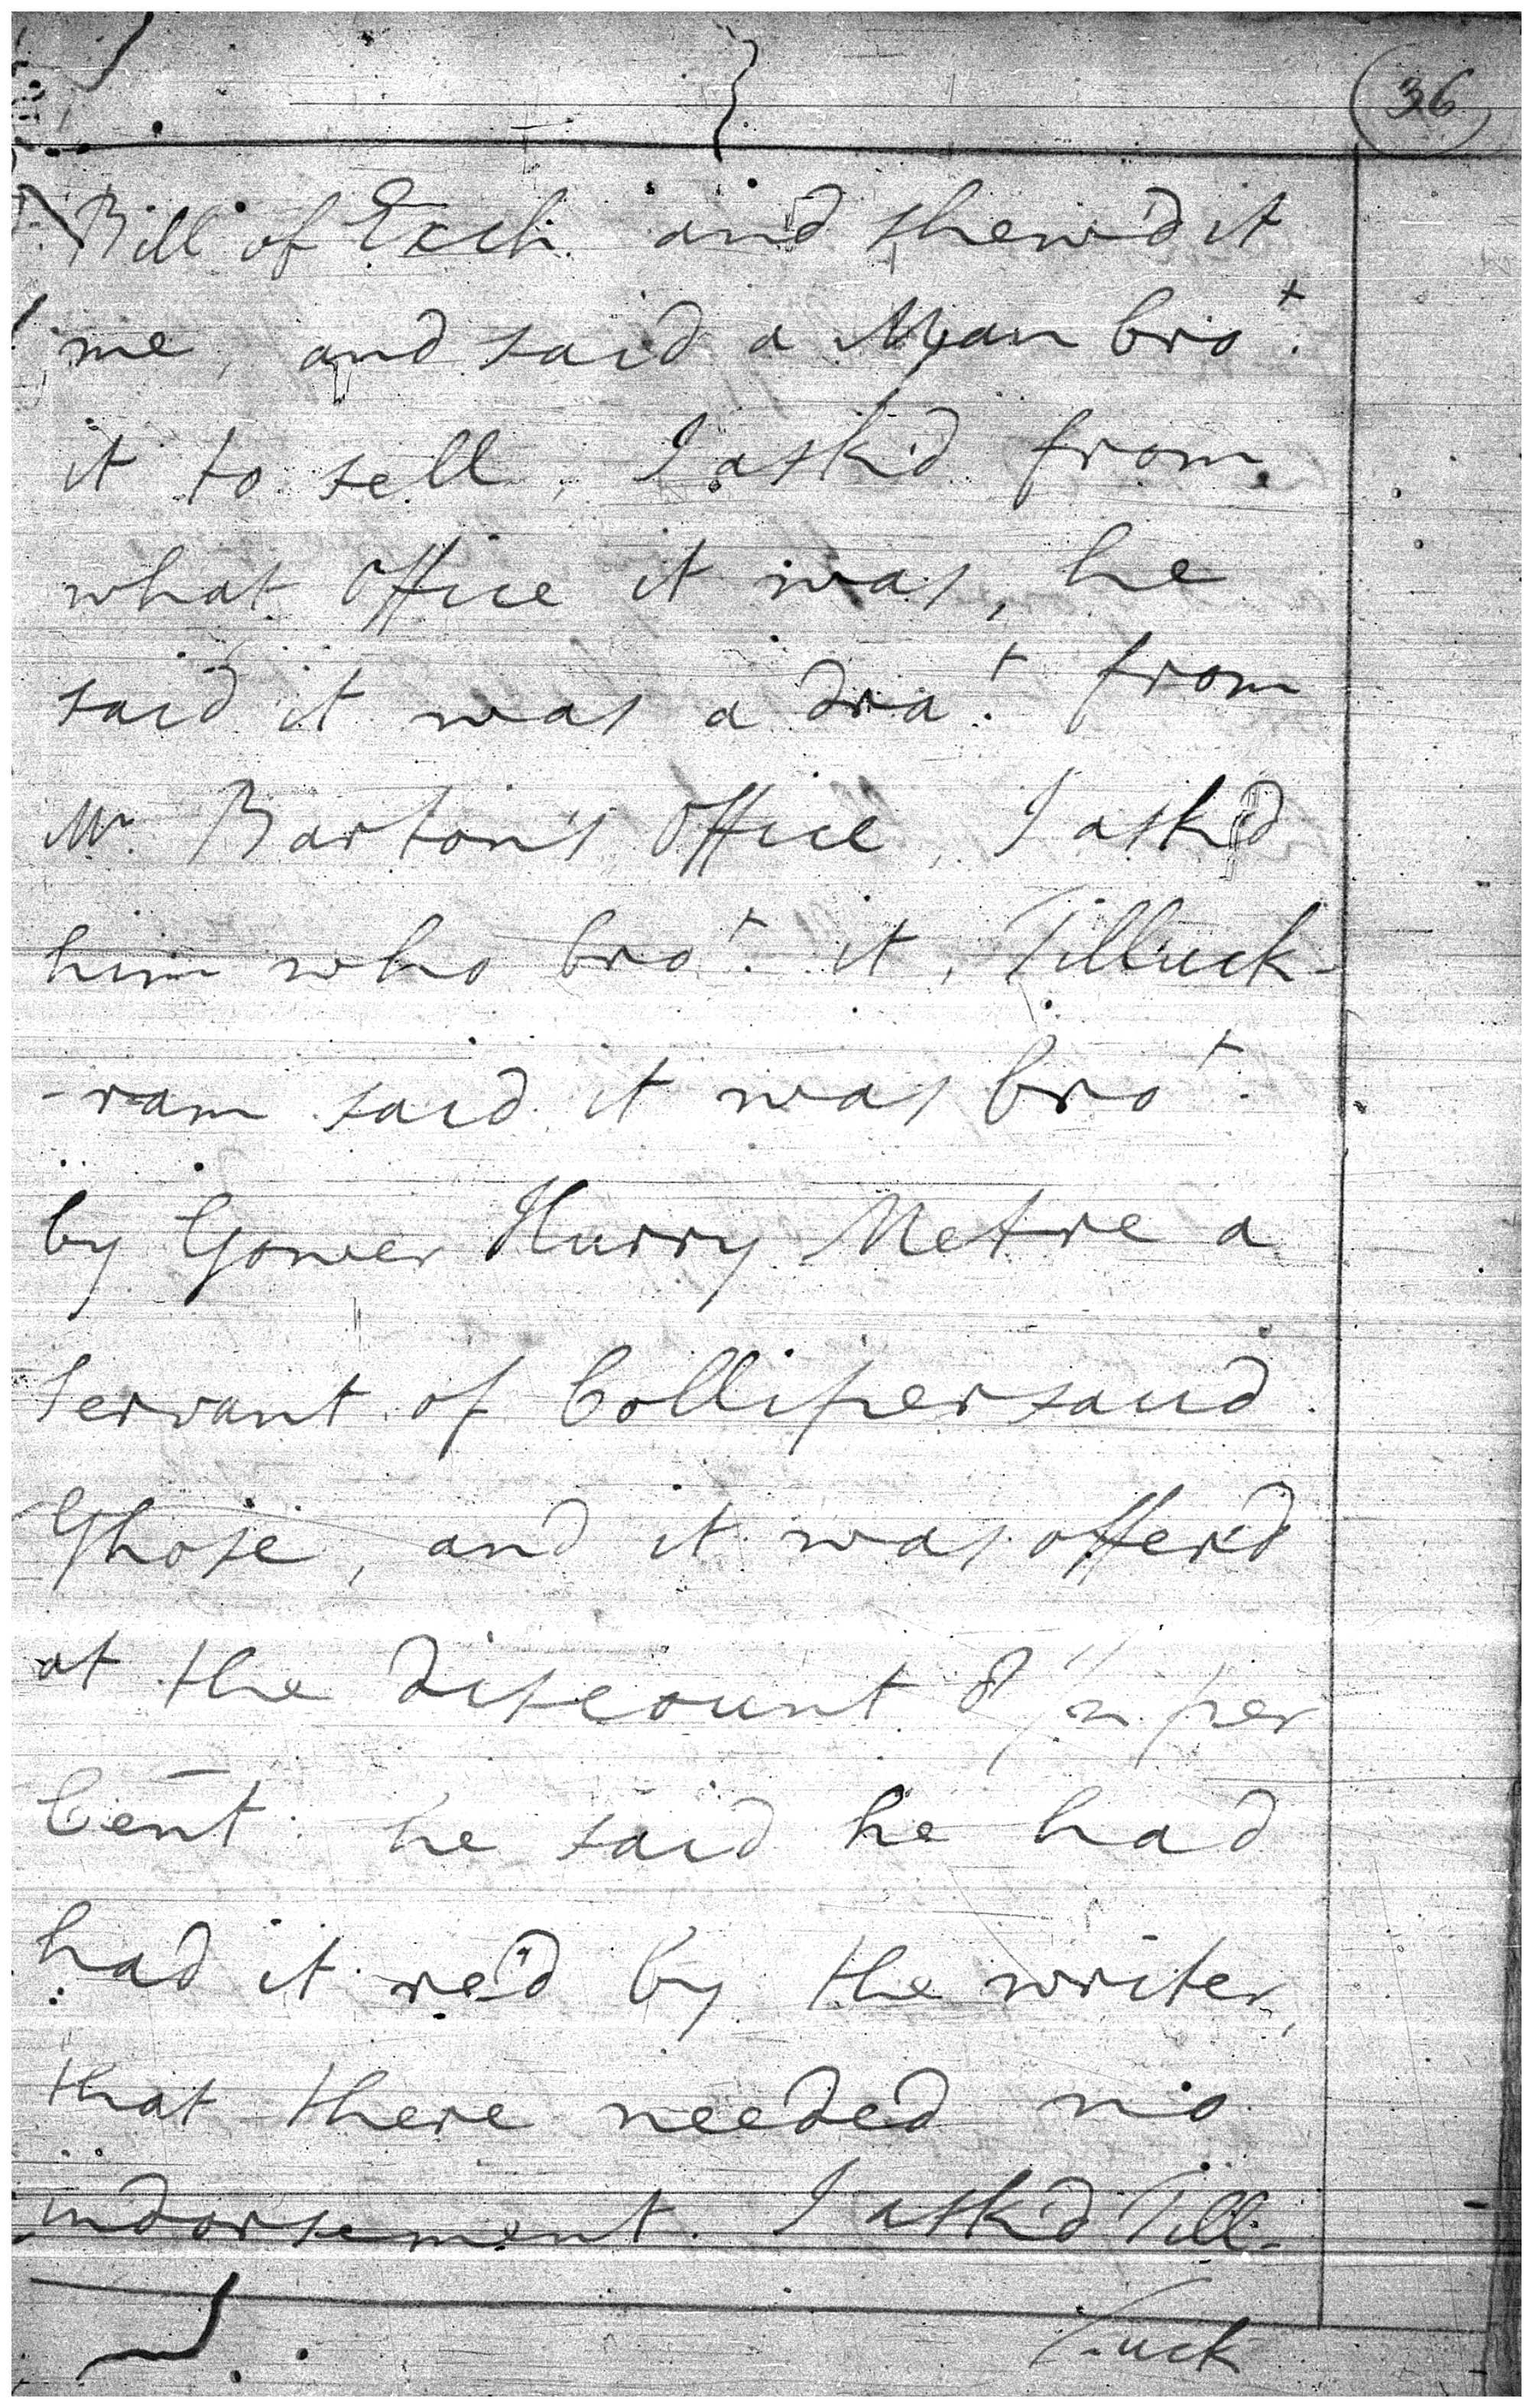 36
Bill of Exch. and shew'd it
me, and said a Man bro.t
it to sell, I ask'd from
what Office it was, he
said it was a dra.t from
Mr. Barton's Office, I ask'd
him who bro.t it, Tilluck-
-ram said it was bro.t
by Gower Hurry Metre a
Servant of Collipersaud
Ghose, and it was offer'd
at the discount 8 1/2 per
Cent. he said he had
had it re'd by the writer,
that there needed no
indorsement. I ask'd Till-
luck